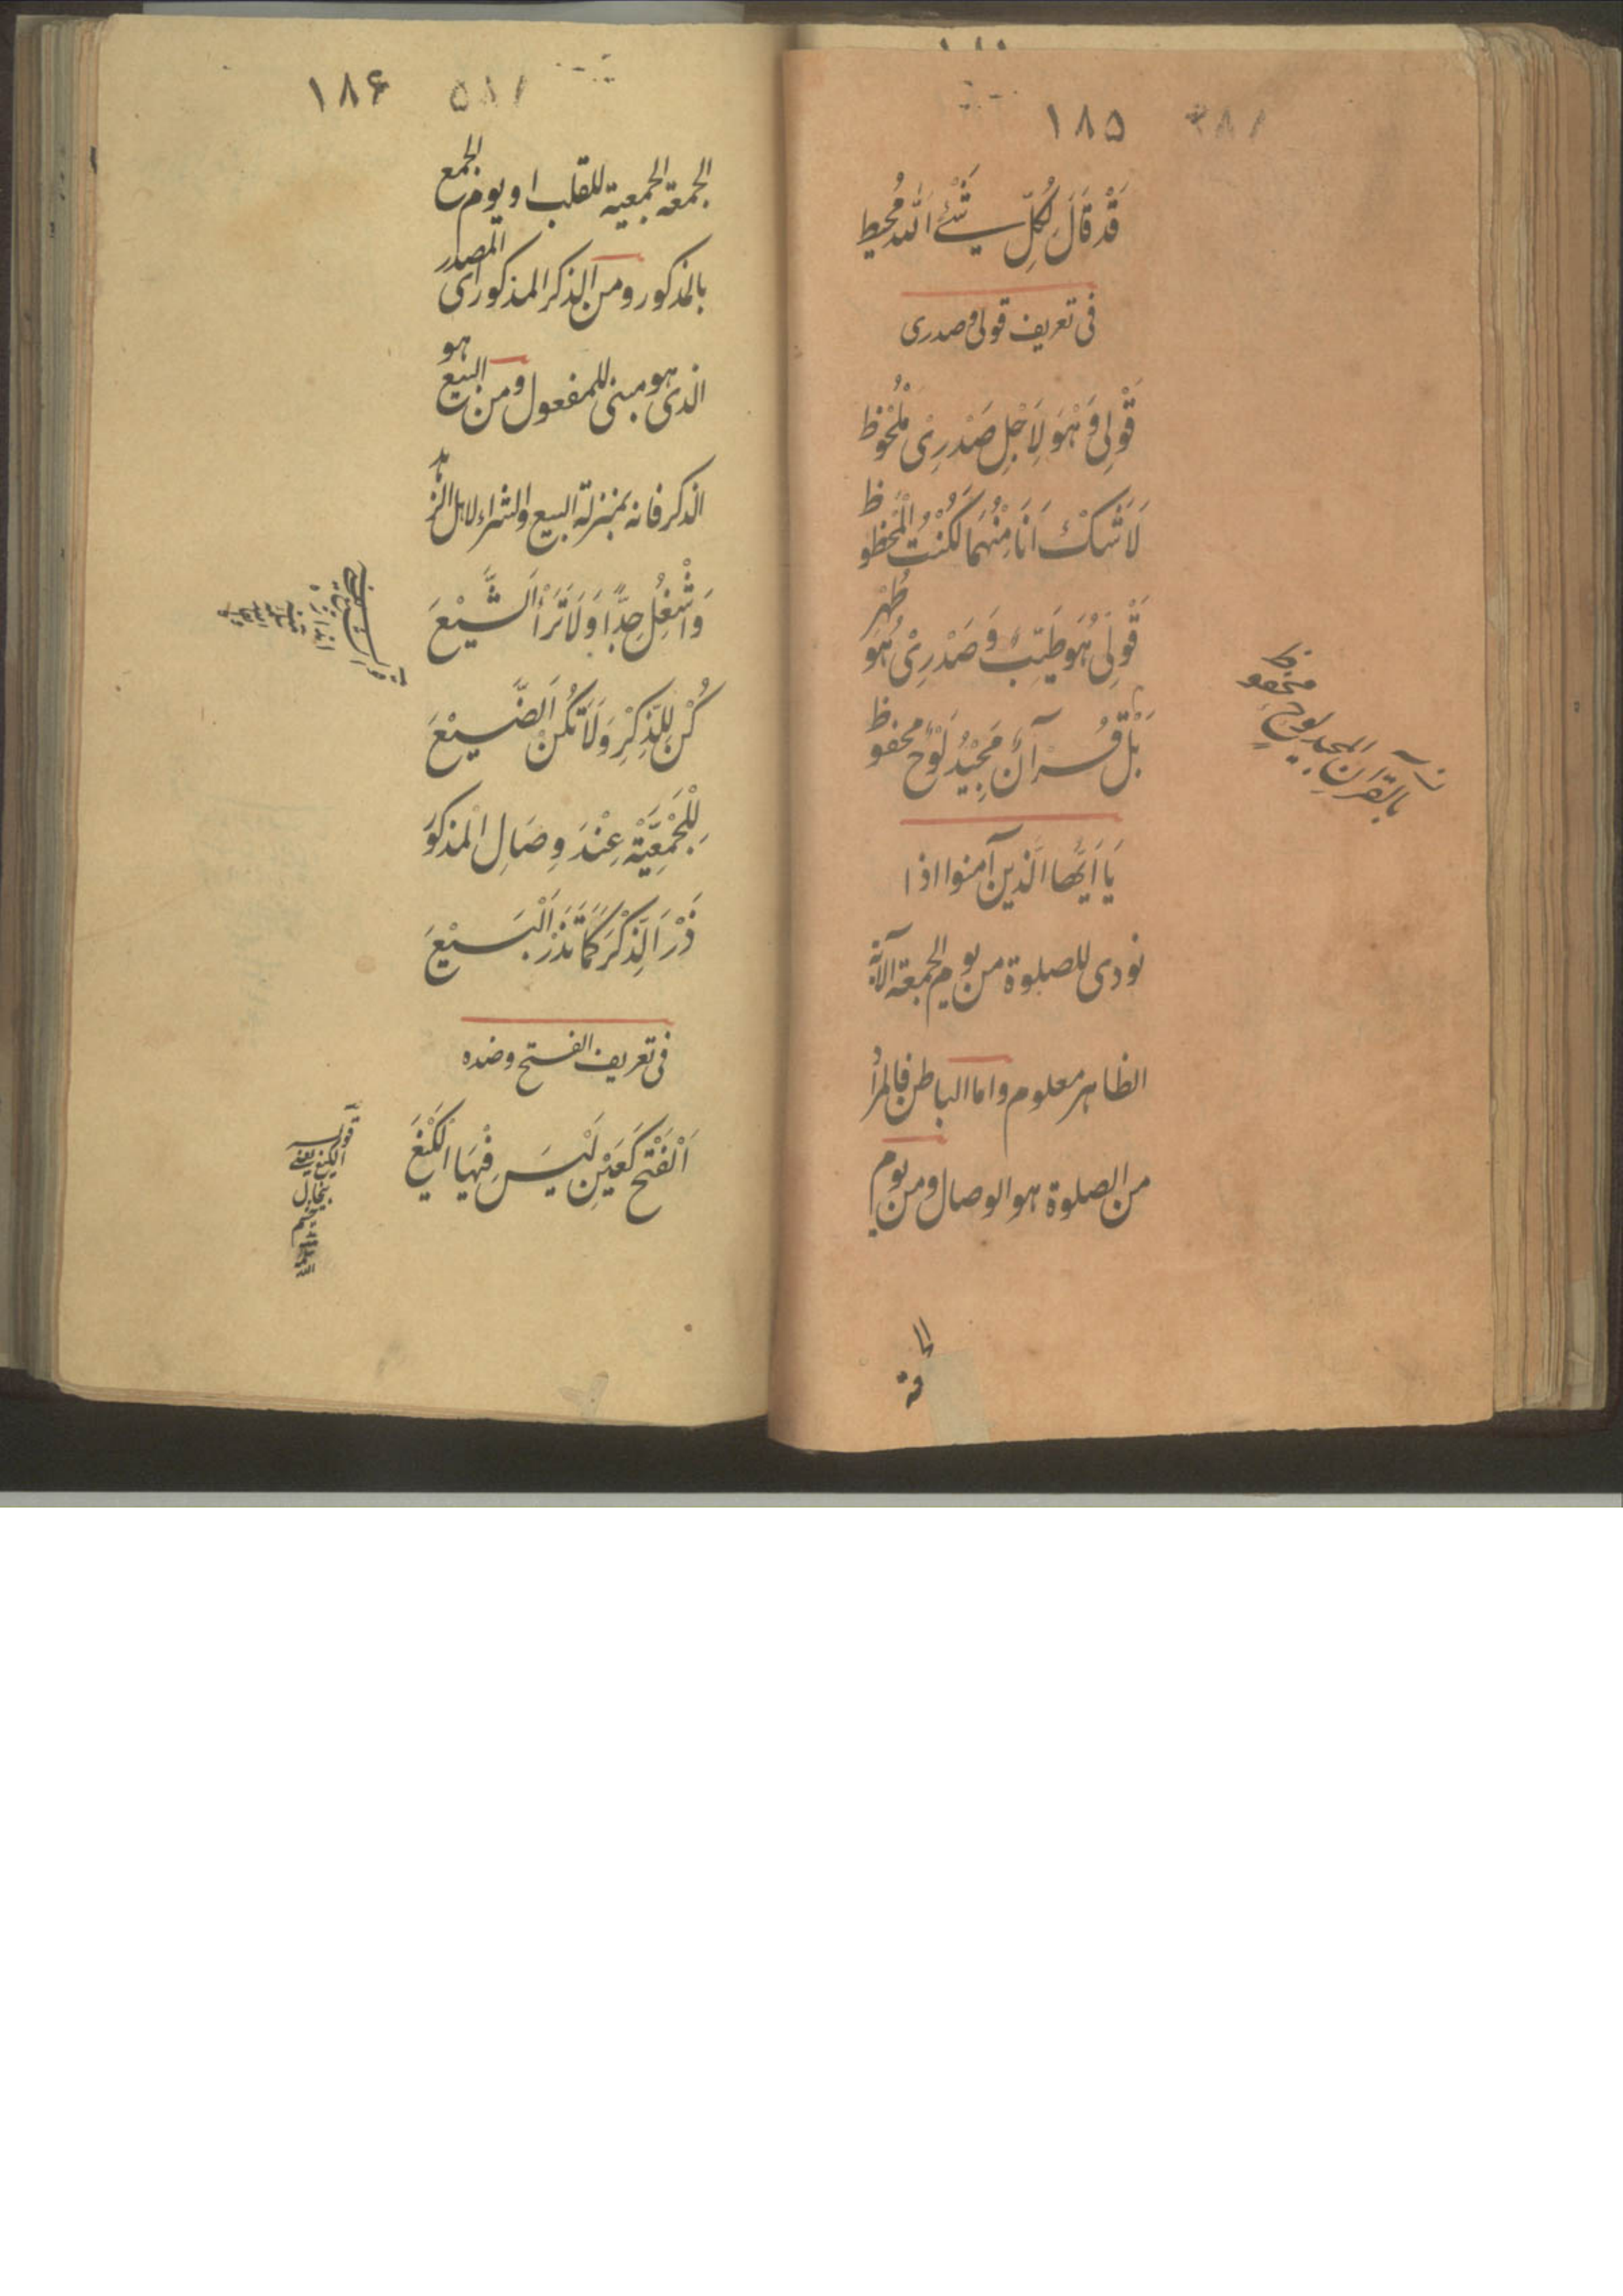 ۱۸۵
قَدْ قَالَ لِكُلِّ شَیْءٍ اَللّٰهُ مُحِیط
فی تعریف قولی و صدری
قَوْلِی وَ هُوَ لِاَجْلِ صَدْرِیْ مَلْحُوْظ
لَا شَکَّ اَنَا مِنْهُمَا لَکُنْتُ الْمَحْظُوظ
قَوْلِیْ هُوَ طَیِّبٌ وَ صَدْرِیْ هُوَ طُهْر
بَلْ قُرْآنٌ مَجِیْدُ لَوْحٌ محفوظ
بالقرآن المجید لوحٍ محفوظ
یَا اَیُّهَا الَّذین آمنوا اذا
نودی للصلوة من یوم الجمعة الآیة
الظاهر معلوم و اما الباطن فالمرأ
من الصلوة هو الوصال و من یوم
الجمعة
۱۸۶
الجمعة الجمعیة للقلب او یوم الجمع
بالمذکور و من الذکر المذکور ای المصدر
الذی هو مبنی للمفعول و من البیع هو
الذکر فانه بمنزلة البیع و الشراء لاهل الزهد
وَاشْغُلْ جِدًّا وَلَا تَرَأ الشَّیْعَ
کُنْ لِلذِّکْرِ وَلَا تَکُنْ الضَّیْعَ
لِلْجَمْعِیَّةِ عِنْدَ وِصَالِ الْمَذکوُرَ
ذَرْ الذِّکْرَ کَمَا تَذَرْ الْبَیْعَ
فی تعریف الفتح و ضده
اَلْفَتْح کَعَیْنٍ لَیْسَ فِیْهَا الکَیْغَ
قوله
الکیغ یعنی